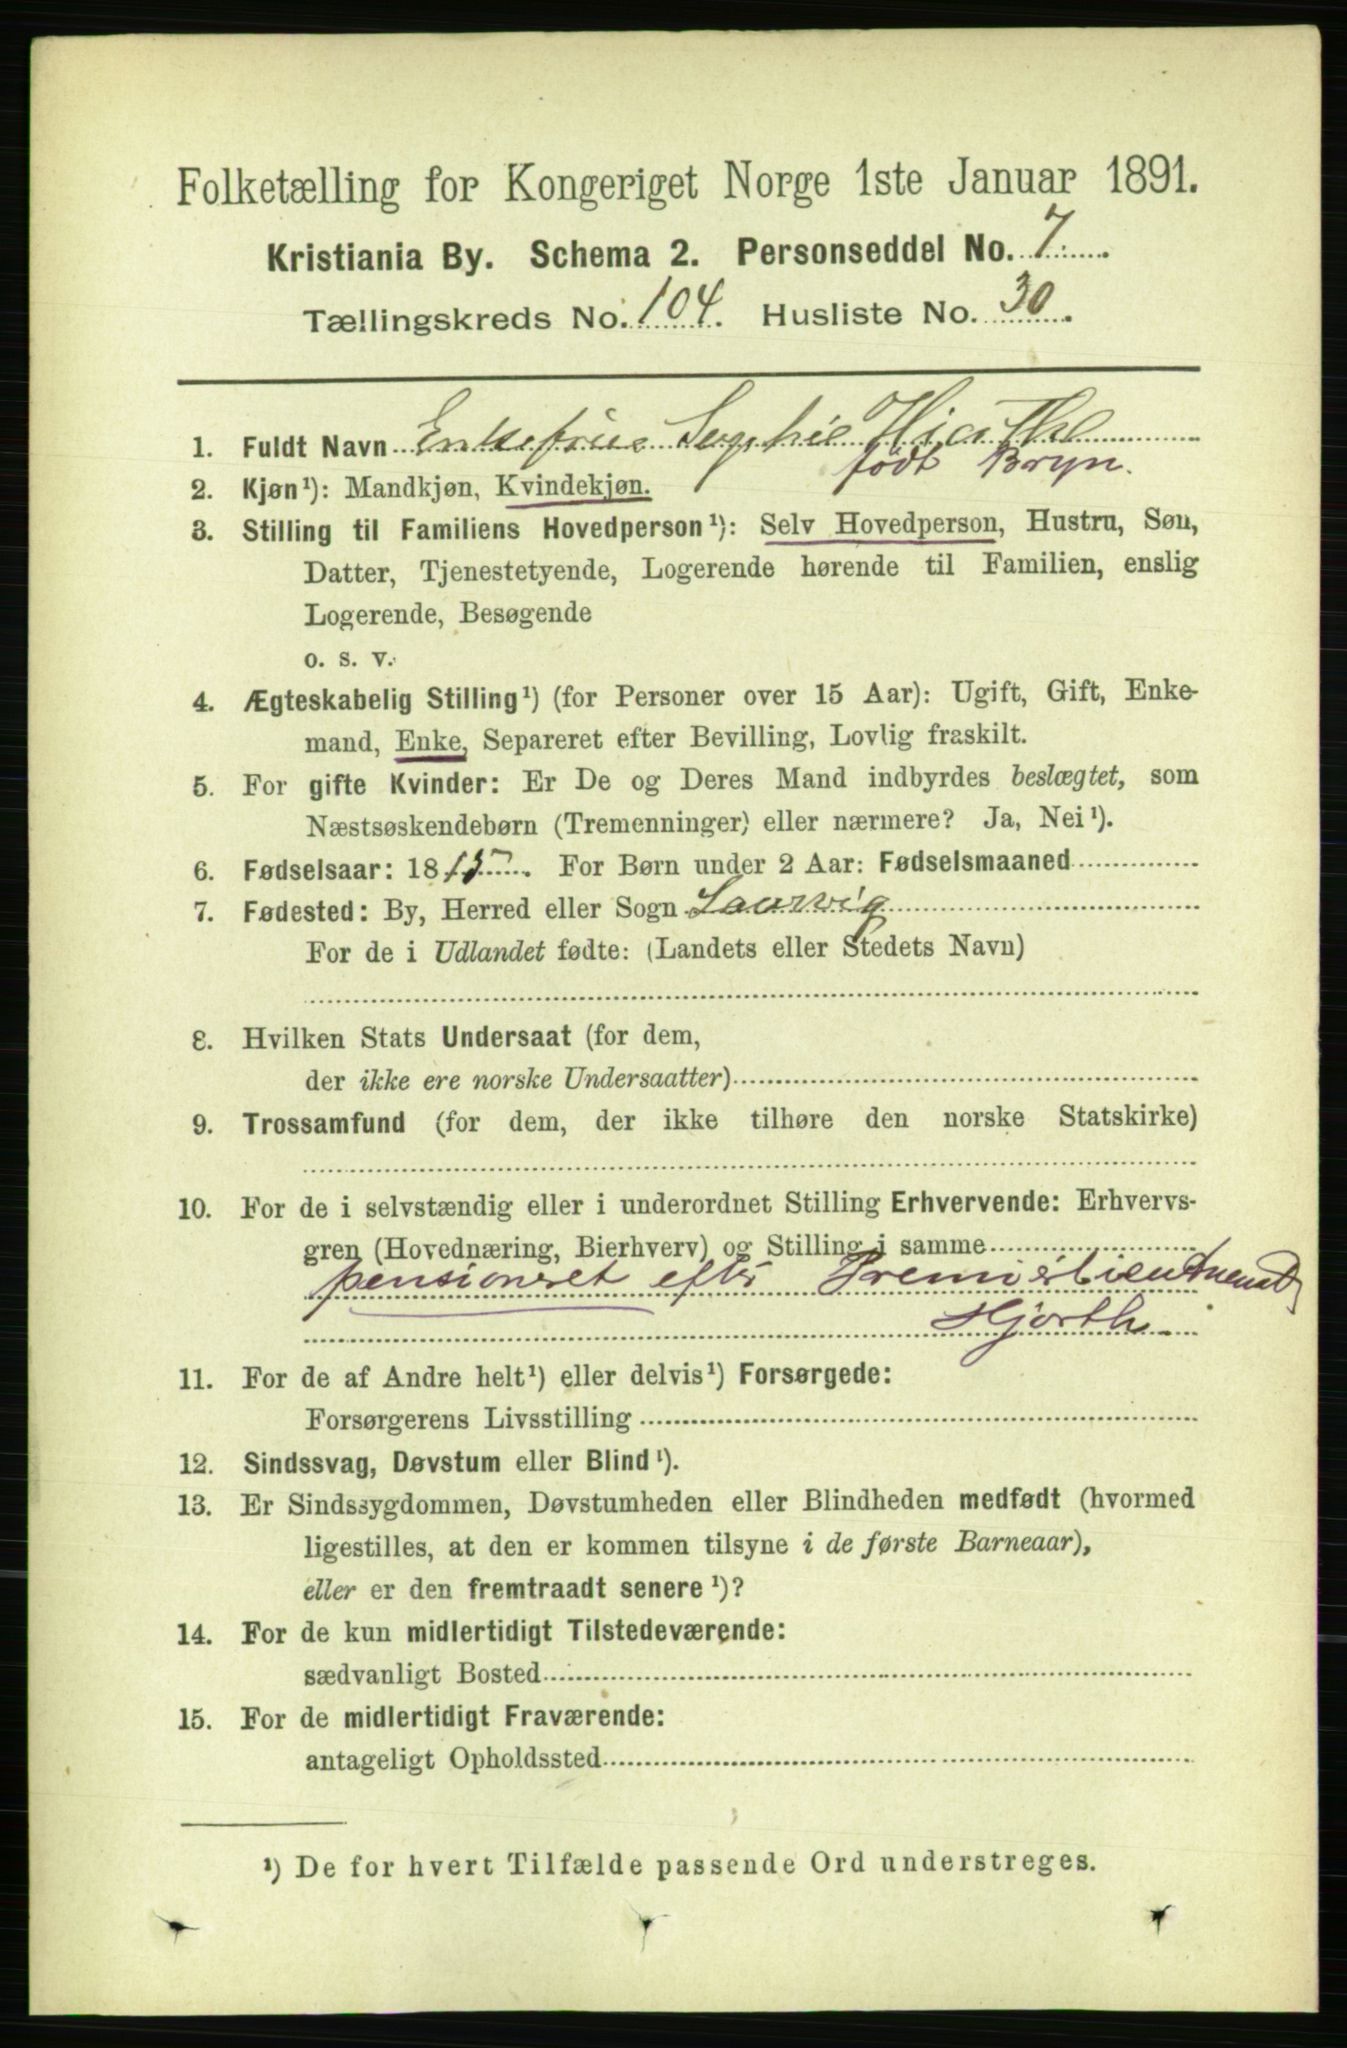 Folketælling for Kongeriget Norge 1ste Januar 1891.
Kristiania By. Schema 2. Personseddel No. 7
Tællingskreds No. 104. Husliste No. 30.
1. Fuldt Navn Enkefrue Sophie Hjorth
født Bryn.
2. Kjøn¹): Mandkjøn, Kvindekjøn.
3. Stilling til Familiens Hovedperson¹): Selv Hovedperson, Hustru, Søn,
Datter, Tjenestetyende, Logerende hørende til Familien, enslig
Logerende, Besøgende
o. s. v.
4. Ægteskabelig Stilling¹) (for Personer over 15 Aar): Ugift, Gift, Enke-
mand, Enke, Separeret efter Bevilling, Lovlig fraskilt.
5. For gifte Kvinder: Er De og Deres Mand indbyrdes beslægtet, som
Næstsøskendebørn (Tremenninger) eller nærmere? Ja, Nei¹).
6. Fødselsaar: 1815. For Børn under 2 Aar: Fødselsmaaned
7. Fødested: By, Herred eller Sogn Laurvig
For de i Udlandet fødte: (Landets eller Stedets Navn)
8. Hvilken Stats Undersaat (for dem,
der ikke ere norske Undersaatter)
9. Trossamfund (for dem, der ikke tilhøre den norske Statskirke)
10. For de i selvstændig eller i underordnet Stilling Erhvervende: Erhvervs-
gren (Hovednæring, Bierhverv) og Stilling i samme
pensioneret efter Premierlieutnenat
Hjorth.
11. For de af Andre helt¹) eller delvis¹) Forsørgede:
Forsørgerens Livsstilling
12. Sindssvag, Døvstum eller Blind¹).
13. Er Sindssygdommen, Døvstumheden eller Blindheden medfødt (hvormed
ligestilles, at den er kommen tilsyne i de første Barneaar),
eller er den fremtraadt senere¹)?
14. For de kun midlertidigt Tilstedeværende:
sædvanligt Bosted
15. For de midlertidigt Fraværende:
antageligt Opholdssted
¹) De for hvert Tilfælde passende Ord understreges.